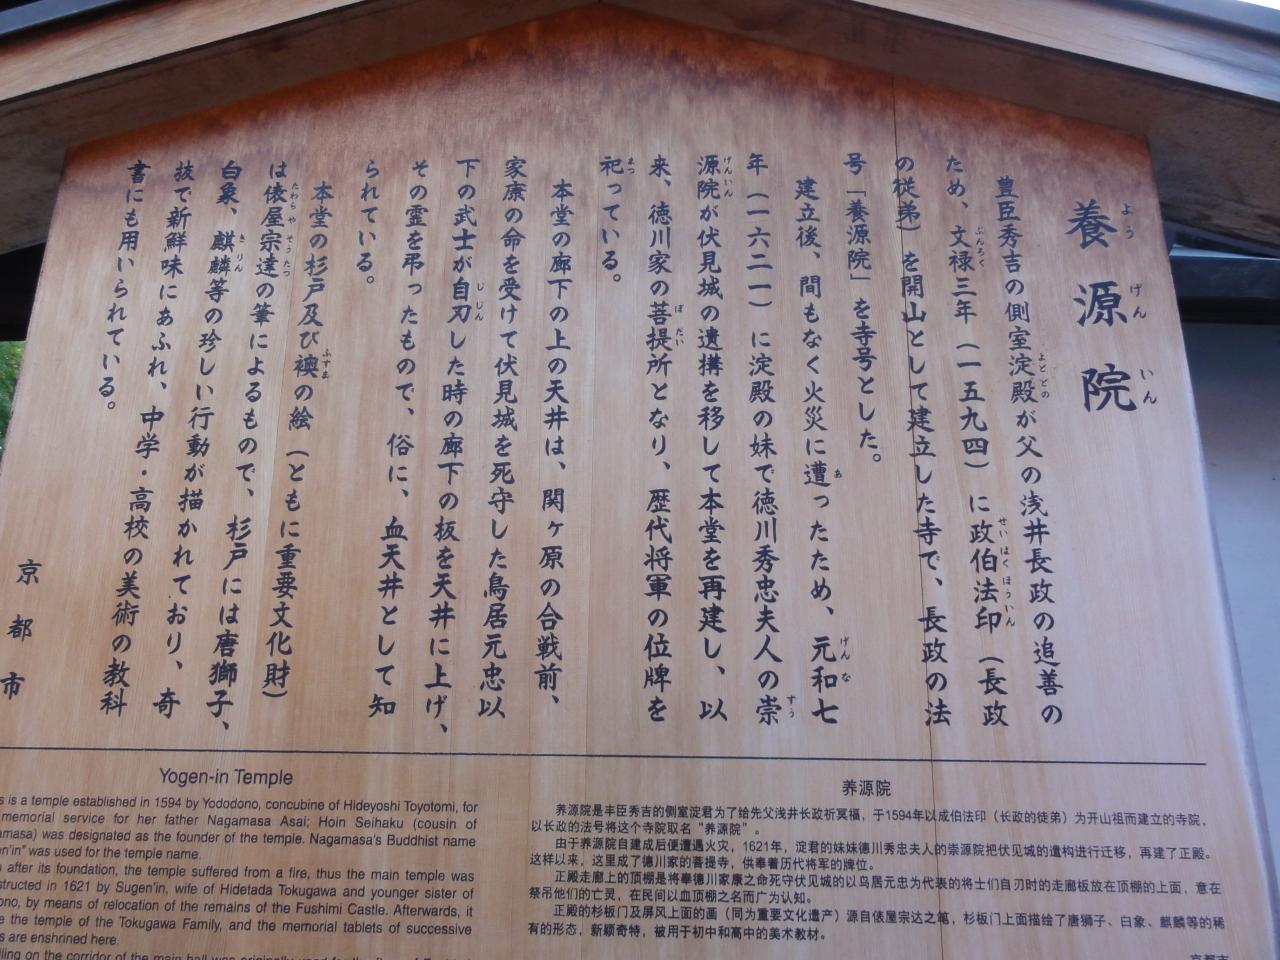 養源院
よう げん いん
豊臣秀吉の側室淀殿が父の浅井長政の追善の
よどどの
ため、文禄三年（一五九四）に政伯法印（長政
ぶんろく せいはくほういん
の従弟）を開山として建立した寺で、長政の法
号「養源院」を寺号とした。
建立後、間もなく火災に遭ったため、元和七
あ げんな
年（一六二一）に淀殿の妹で徳川秀忠夫人の崇
すう
源院が伏見城の遺構を移して本堂を再建し、以
げんいん
来、徳川家の菩提所となり、歴代将軍の位牌を
ぼだい
祀っている。
まつ
本堂の廊下の上の天井は、関ヶ原の合戦前、
家康の命を受けて伏見城を死守した鳥居元忠以
下の武士が自刃した時の廊下の板を天井に上げ、
じじん
その霊を弔ったもので、俗に、血天井として知
られている。
本堂の杉戸及び襖の絵（ともに重要文化財）
ふすま
は俵屋宗達の筆によるもので、杉戸には唐獅子、
たわらや そうたつ
白象、麒麟等の珍しい行動が描かれており、奇
きりん
抜で新鮮味にあふれ、中学・高校の美術の教科
書にも用いられている。
京都市
Yogen-in Temple
s is a temple established in 1594 by Yododono, concubine of Hideyoshi Toyotomi, for
memorial service for her father Nagamasa Asai; Hoin Seihaku (cousin of
amasa) was designated as the founder of the temple. Nagamasa's Buddhist name
en'in" was used for the temple name.
after its foundation, the temple suffered from a fire, thus the main temple was
structed in 1621 by Sugen'in, wife of Hidetada Tokugawa and younger sister of
ono, by means of relocation of the remains of the Fushimi Castle. Afterwards, it
e the temple of the Tokugawa Family, and the memorial tablets of successive
s are enshrined here.
养源院
养源院是丰臣秀吉的侧室淀君为了给先父浅井长政祈冥福，于1594年以成伯法印（长政的徒弟）为开山祖而建立的寺院，
以长政的法号将这个寺院取名“养源院”。
由于养源院自建成后便遭遇火灾，1621年，淀君的妹妹德川秀忠夫人的崇源院把伏见城的遗构进行迁移，再建了正殿。
这样以来，这里成了德川家的菩提寺，供奉着历代将军的牌位。
正殿走廊上的顶棚是将奉德川家康之命死守伏见城的以鸟居元忠为代表的将士们自刃时的走廊板放在顶棚的上面，意在
祭吊他们的亡灵，在民间以血顶棚之名而广为认知。
正殿的杉板门及屏风上面的画（同为重要文化遗产）源自俵屋宗达之笔，杉板门上面描绘了唐狮子、白象、麒麟等的稀
有的形态，新颖奇特，被用于初中和高中的美术教材。